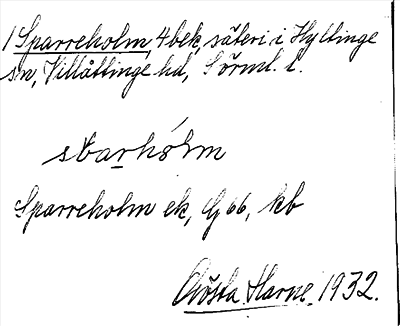 1 Sparreholm, 4 bek, säteri i Hyltinge
sn, Villåttinge hd, Sörml. l.
sparhólm
Sparreholm ek, G 66, kb
Gösta Harne. 1932.